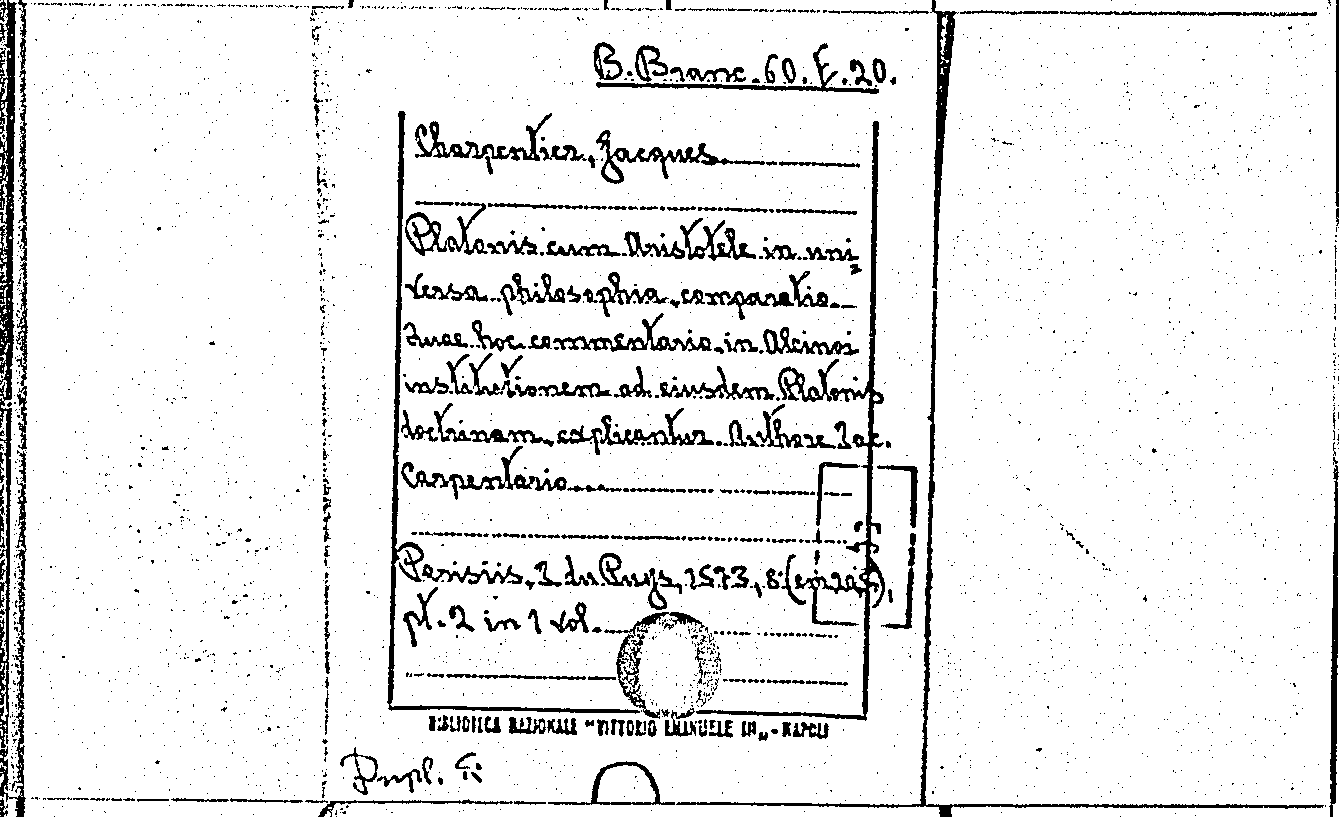 B. Branc. 60. E. 20.
Charpentier, Jacques
Platonis cum Aristotele in uni=
versa philosophia, comparatio
Quae hoc commentario, in Alcinoi
institutionem ad eiusdem Platonis
doctrinam, explicantur. Authore Jac.
Carpentario
Parisiis, J du Puys, 1573, 8°
pt. 2 in 1 vol.
BIBLIOTECA NAZIONALE "VITTORIO EMANUELE III" - NAPOLI
Dupl.